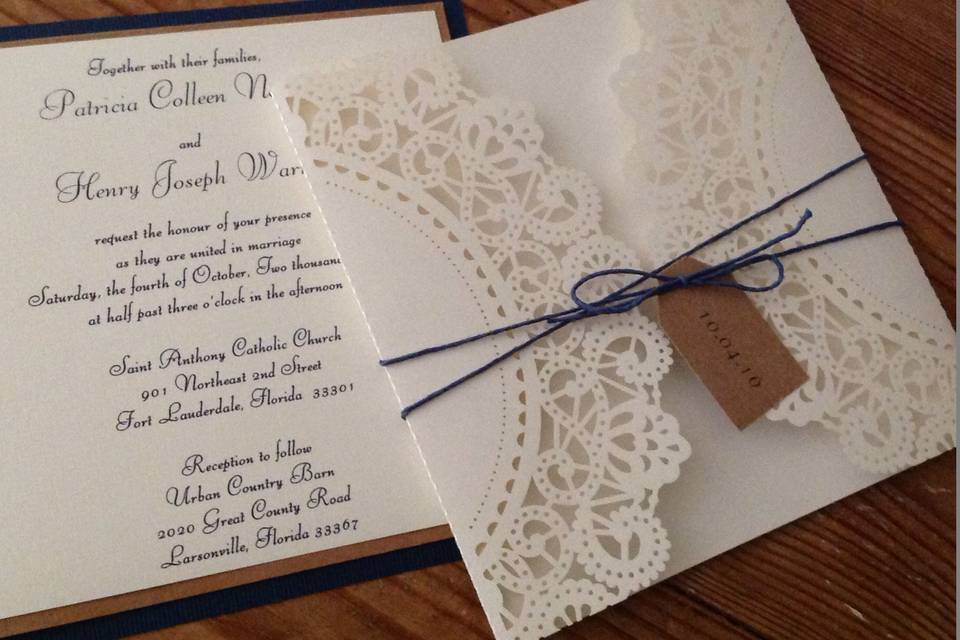 Together with their families,
Patricia Colleen
and
Henry Joseph
request the honour of your presence
as they are united in marriage
Saturday, the fourth of October, Two thousand
at half past three o'clock in the afternoon
Saint Anthony Catholic Church
901 Northeast 2nd Street
Fort Lauderdale, Florida 33301
Reception to follow
Urban Country Barn
2020 Great County Road
Larsonville, Florida 33367
10.04.10